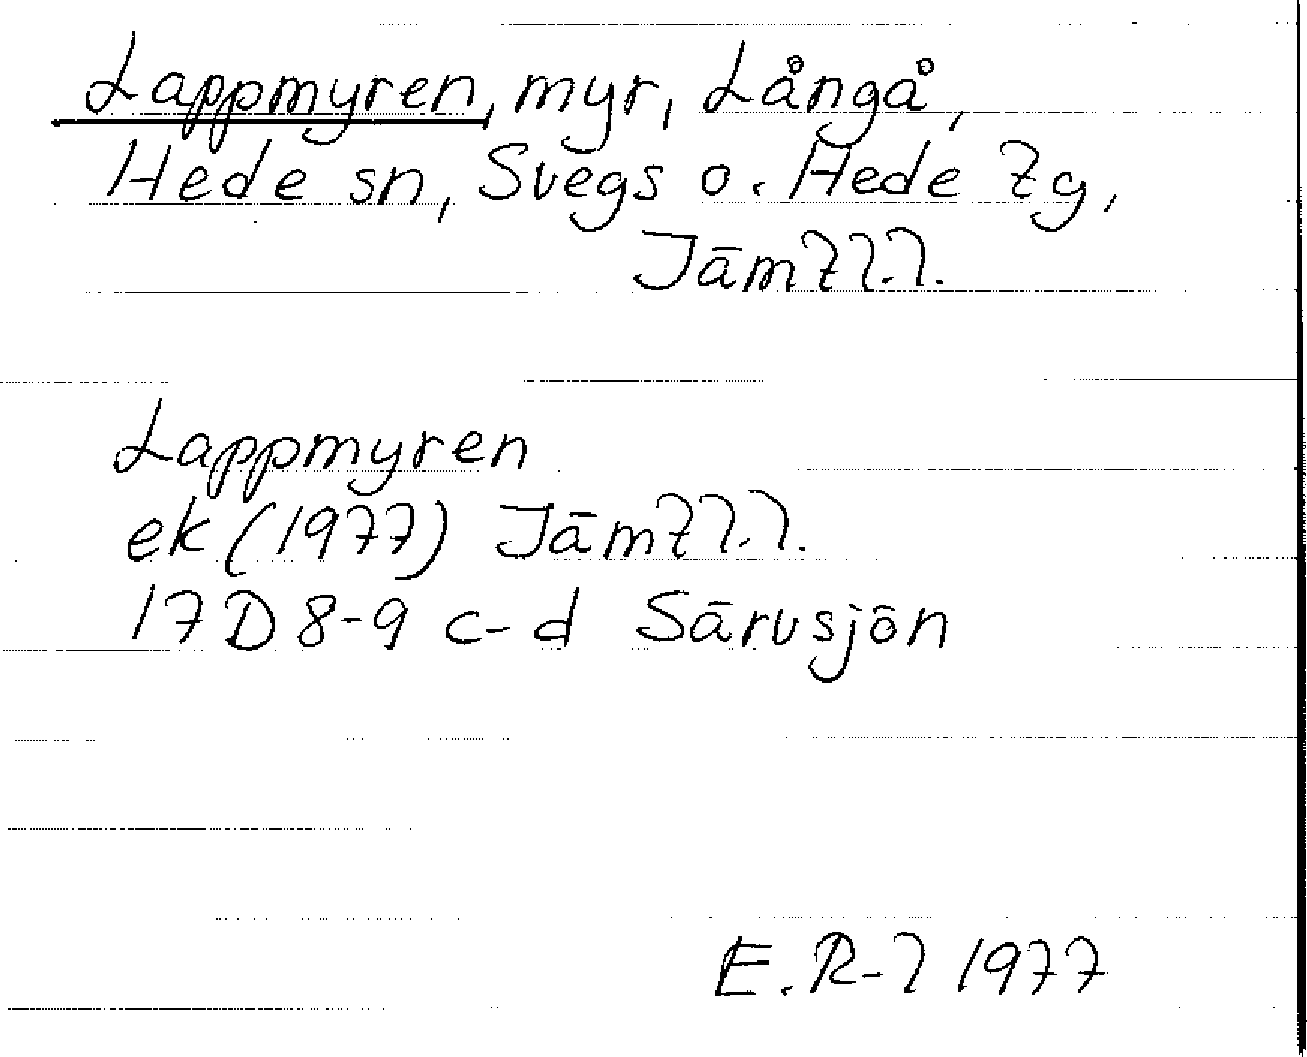 Lappmyren, myr, Långå,
Hede sn, Svegs o. Hede tg,
Jämtl.l.
Lappmyren
ek (1977) Jämtl.l.
17 D 8-9 c-d Särvsjön
E.R-l 1977